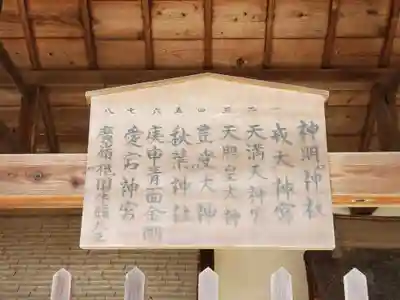 神明神社
一 戎大神宮
二 天満天神宮
三 天照皇大神
四 豊受大神
五 秋葉神社
六 庚申青面金剛
七 愛宕神宮
八